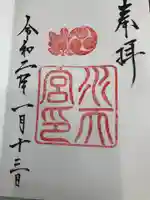 奉拝
水天宮印
令和二年一月十三日